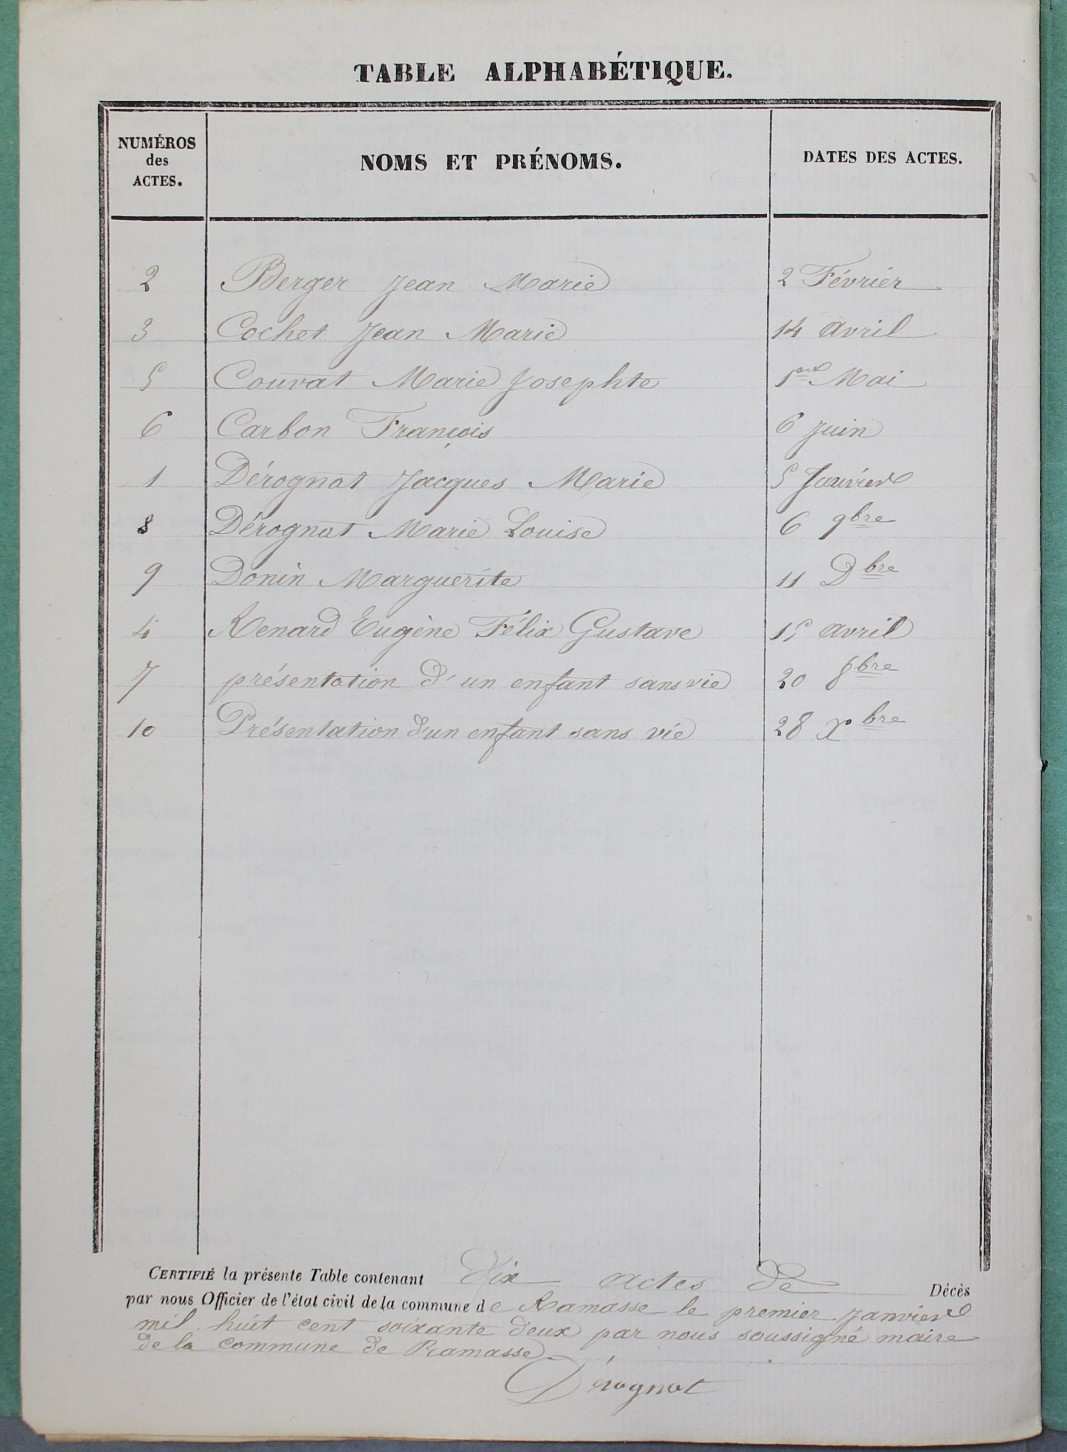 TABLE ALPHABÉTIQUE.
NUMÉROS
des
ACTES.
NOMS ET PRÉNOMS.
DATES DES ACTES.
2 Berger Jean Marie 2 Février
3 Cochet Jean Marie 14 avril
5 Couvat Marie Josephte 1er Mai
6 Carbon François 6 Juin
1 Dérognat Jacques Marie 5 Janvier
8 Dérognat Marie Louise 6 9bre
9 Donin Marguerite 11 Dbre
4 Renard Eugène Félix Gustave 15 avril
7 présentation d'un enfant sans vie 20 8bre
10 Présentation d'un enfant sans vie 28 Xbre
CERTIFIÉ la présente Table contenant dix actes de Décès
par nous Officier de l'état civil de la commune de Ramasse le premier Janvier
mil huit cent soixante deux par nous soussigné maire
de la commune de Ramasse
Dérognat